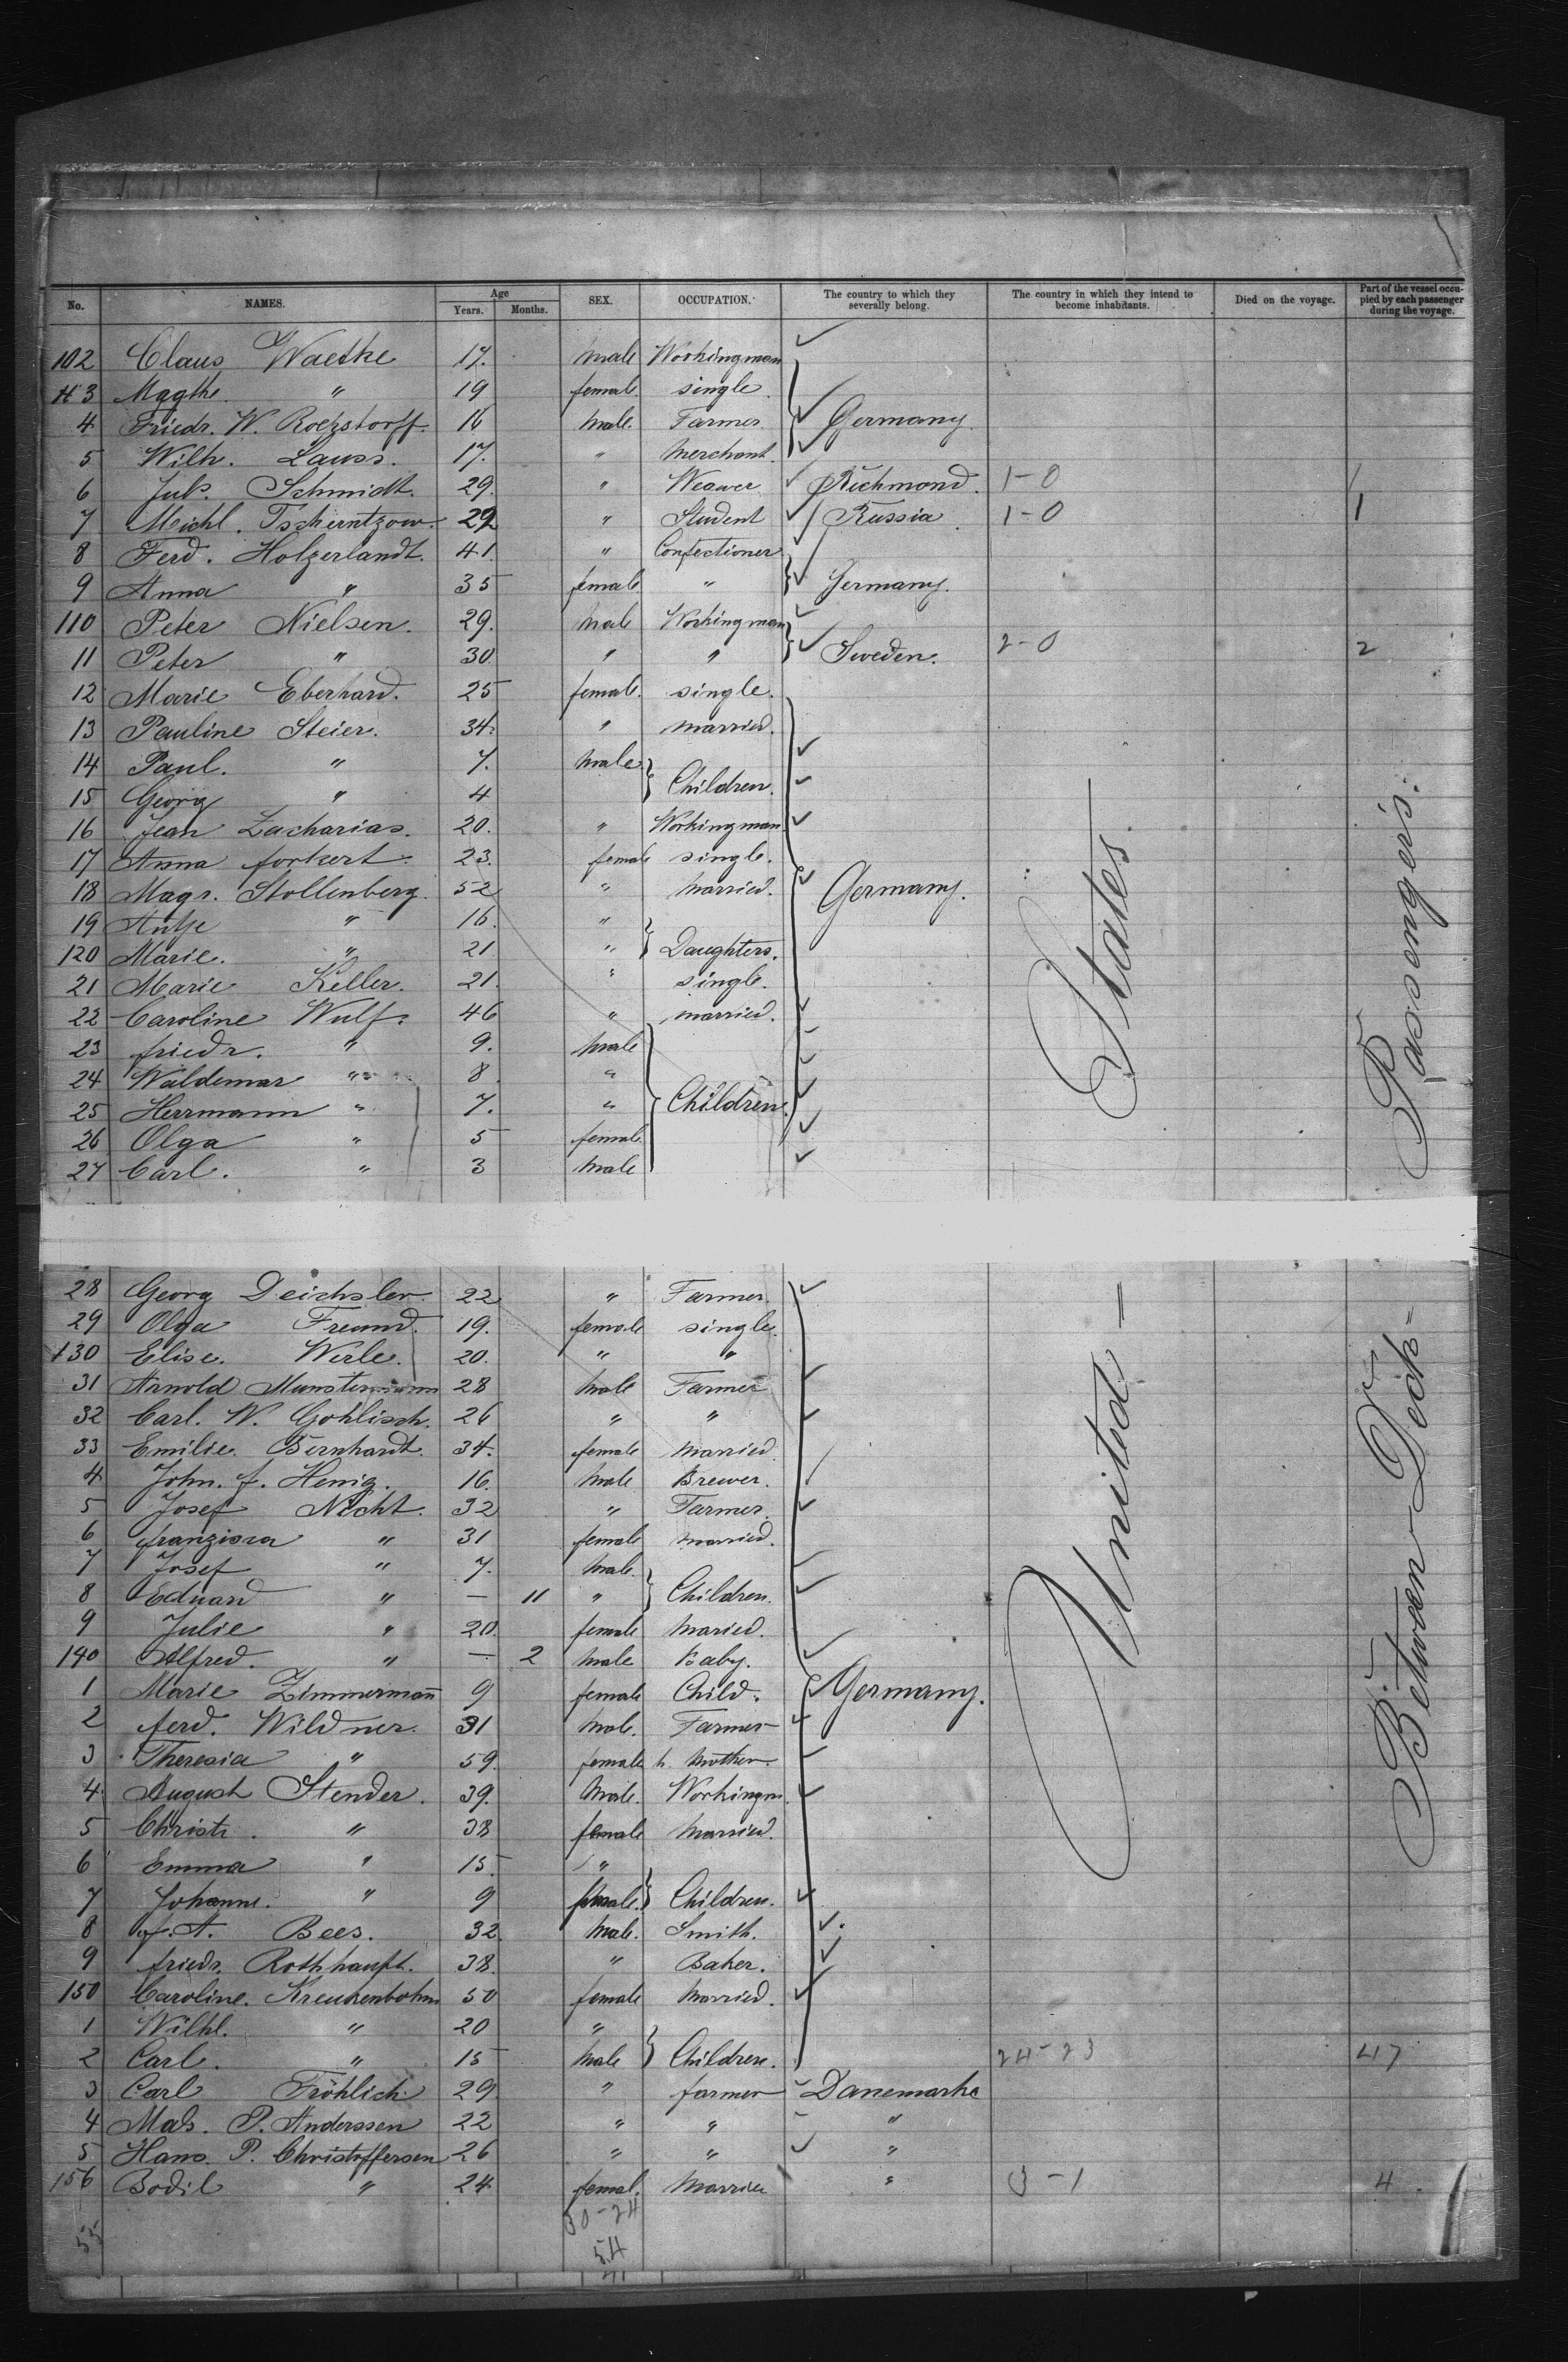 No. NAMES. Age Years. Months. SEX. OCCUPATION. The country to which they severally belong. The country in which they intend to become inhabitants. Died on the voyage. Part of the vessel occupied by each passenger during the voyage.
102 Claus Waetke 17. male Workingman
3 Magthe " 19 female single
4 Friedr. W. Roezstorff. 16 male. Farmer Germany.
5 Wilh. Lauss. 17. " Merchant.
6 Juls. Schmidt. 29. " Weawer Richmond. 1-0 1
7 Michl. Tscherntzow. 29 " Student Russia 1-0 1
8 Ferd. Holzerlandt. 41. " Confectioner
9 Anna " 35 female " Germany.
110 Peter Nielsen. 29. male Workingman
11 Peter " 30. " " Sweden. 2-0 2
12 Marie Eberhard. 25 female. single.
13 Pauline Steier. 34. " married.
14 Paul. " 7. male
15 Georg " 4 Children.
16 Jean Zacharias. 20. " Workingman
17 Anna forkert. 23. female single.
18 Magr. Stollenberg. 52 " married. Germany.
19 Antje " 16. "
120 Marie. " 21 " Daughters.
21 Marie Keller. 21. " single.
22 Caroline Wulf. 46 " married.
23 friedr. " 9. male
24 Waldemar " 8. "
25 Herrmann " 7. " Children.
26 Olga " 5 female
27 Carl. " 3 male
28 Georg Deichsler 22 " Farmer.
29 Olga Freund. 19. female single.
130 Elise. Werle. 20. " "
31 Arnold Munstermann 28 male Farmer
32 Carl. W. Gohlisch. 26 " "
33 Emilie. Bernhardt. 34. female married.
4 John. f. Henig. 16. male Brewer.
5 Josef Nicht. 32 " Farmer.
6 franzisca " 31 female married.
7 Josef " 7. male.
8 Eduard " — 11 " Children.
9 Julie " 20. female maried.
140 Alfred. " — 2 male Baby.
1 Marie Zimmermann 9 female Child. Germany.
2 ferd. Wildner. 31 male. Farmer
3 Theresia " 59. female h. mother.
4 August Stender. 39. male. Workingm.
5 Christi. " 38 female married.
6 Emma " 15. "
7 Johanne. " 9 female. Children.
8 f. A. Bees. 32. male. Smith.
9 friedr. Rothhaupt. 38. " Baker.
150 Caroline. Kreutzenbohm 50 female married.
1 Wilhl. " 20 "
2 Carl. " 15 male Children. 24-23 47
3 Carl Fröhlich 29. " farmer Danemarke
4 Mads. P. Anderssen 22 " " "
5 Hans. P. Christoffersen 26 " " "
156 Bodil " 24 female. Married " 3-1 4
55 30-24
54
United States
Between Deck Passengers.